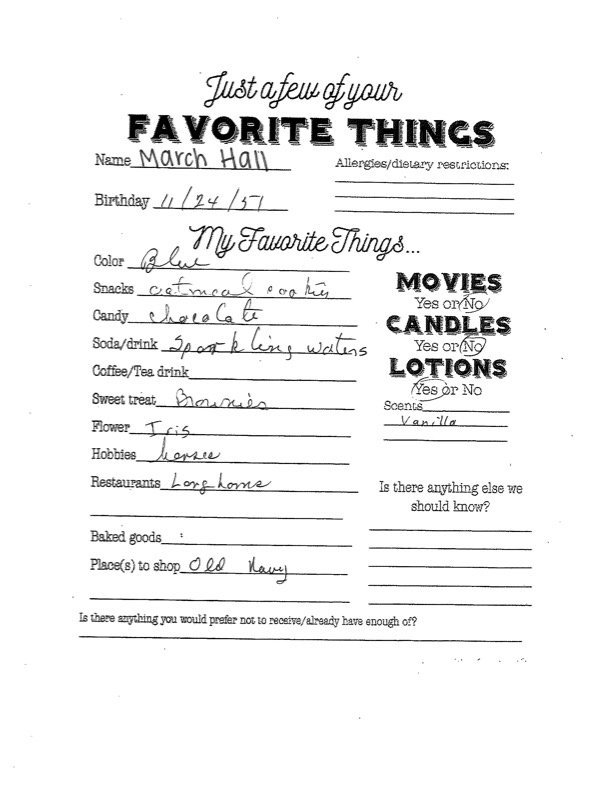 Just a few of your
FAVORITE THINGS
Name March Hall
Allergies/dietary restrictions:
Birthday 11/24/57
My Favorite Things...
Color Blue
Snacks oatmeal cookies
Candy chocolate
Soda/drink Sparkling waters
Coffee/Tea drink
Sweet treat Brownies
Flower Iris
Hobbies horses
Restaurants Longhorns
Baked goods
Place(s) to shop Old Navy
MOVIES
Yes or No
CANDLES
Yes or No
LOTIONS
Yes or No
Scents
Vanilla
Is there anything else we
should know?
Is there anything you would prefer not to receive/already have enough of?